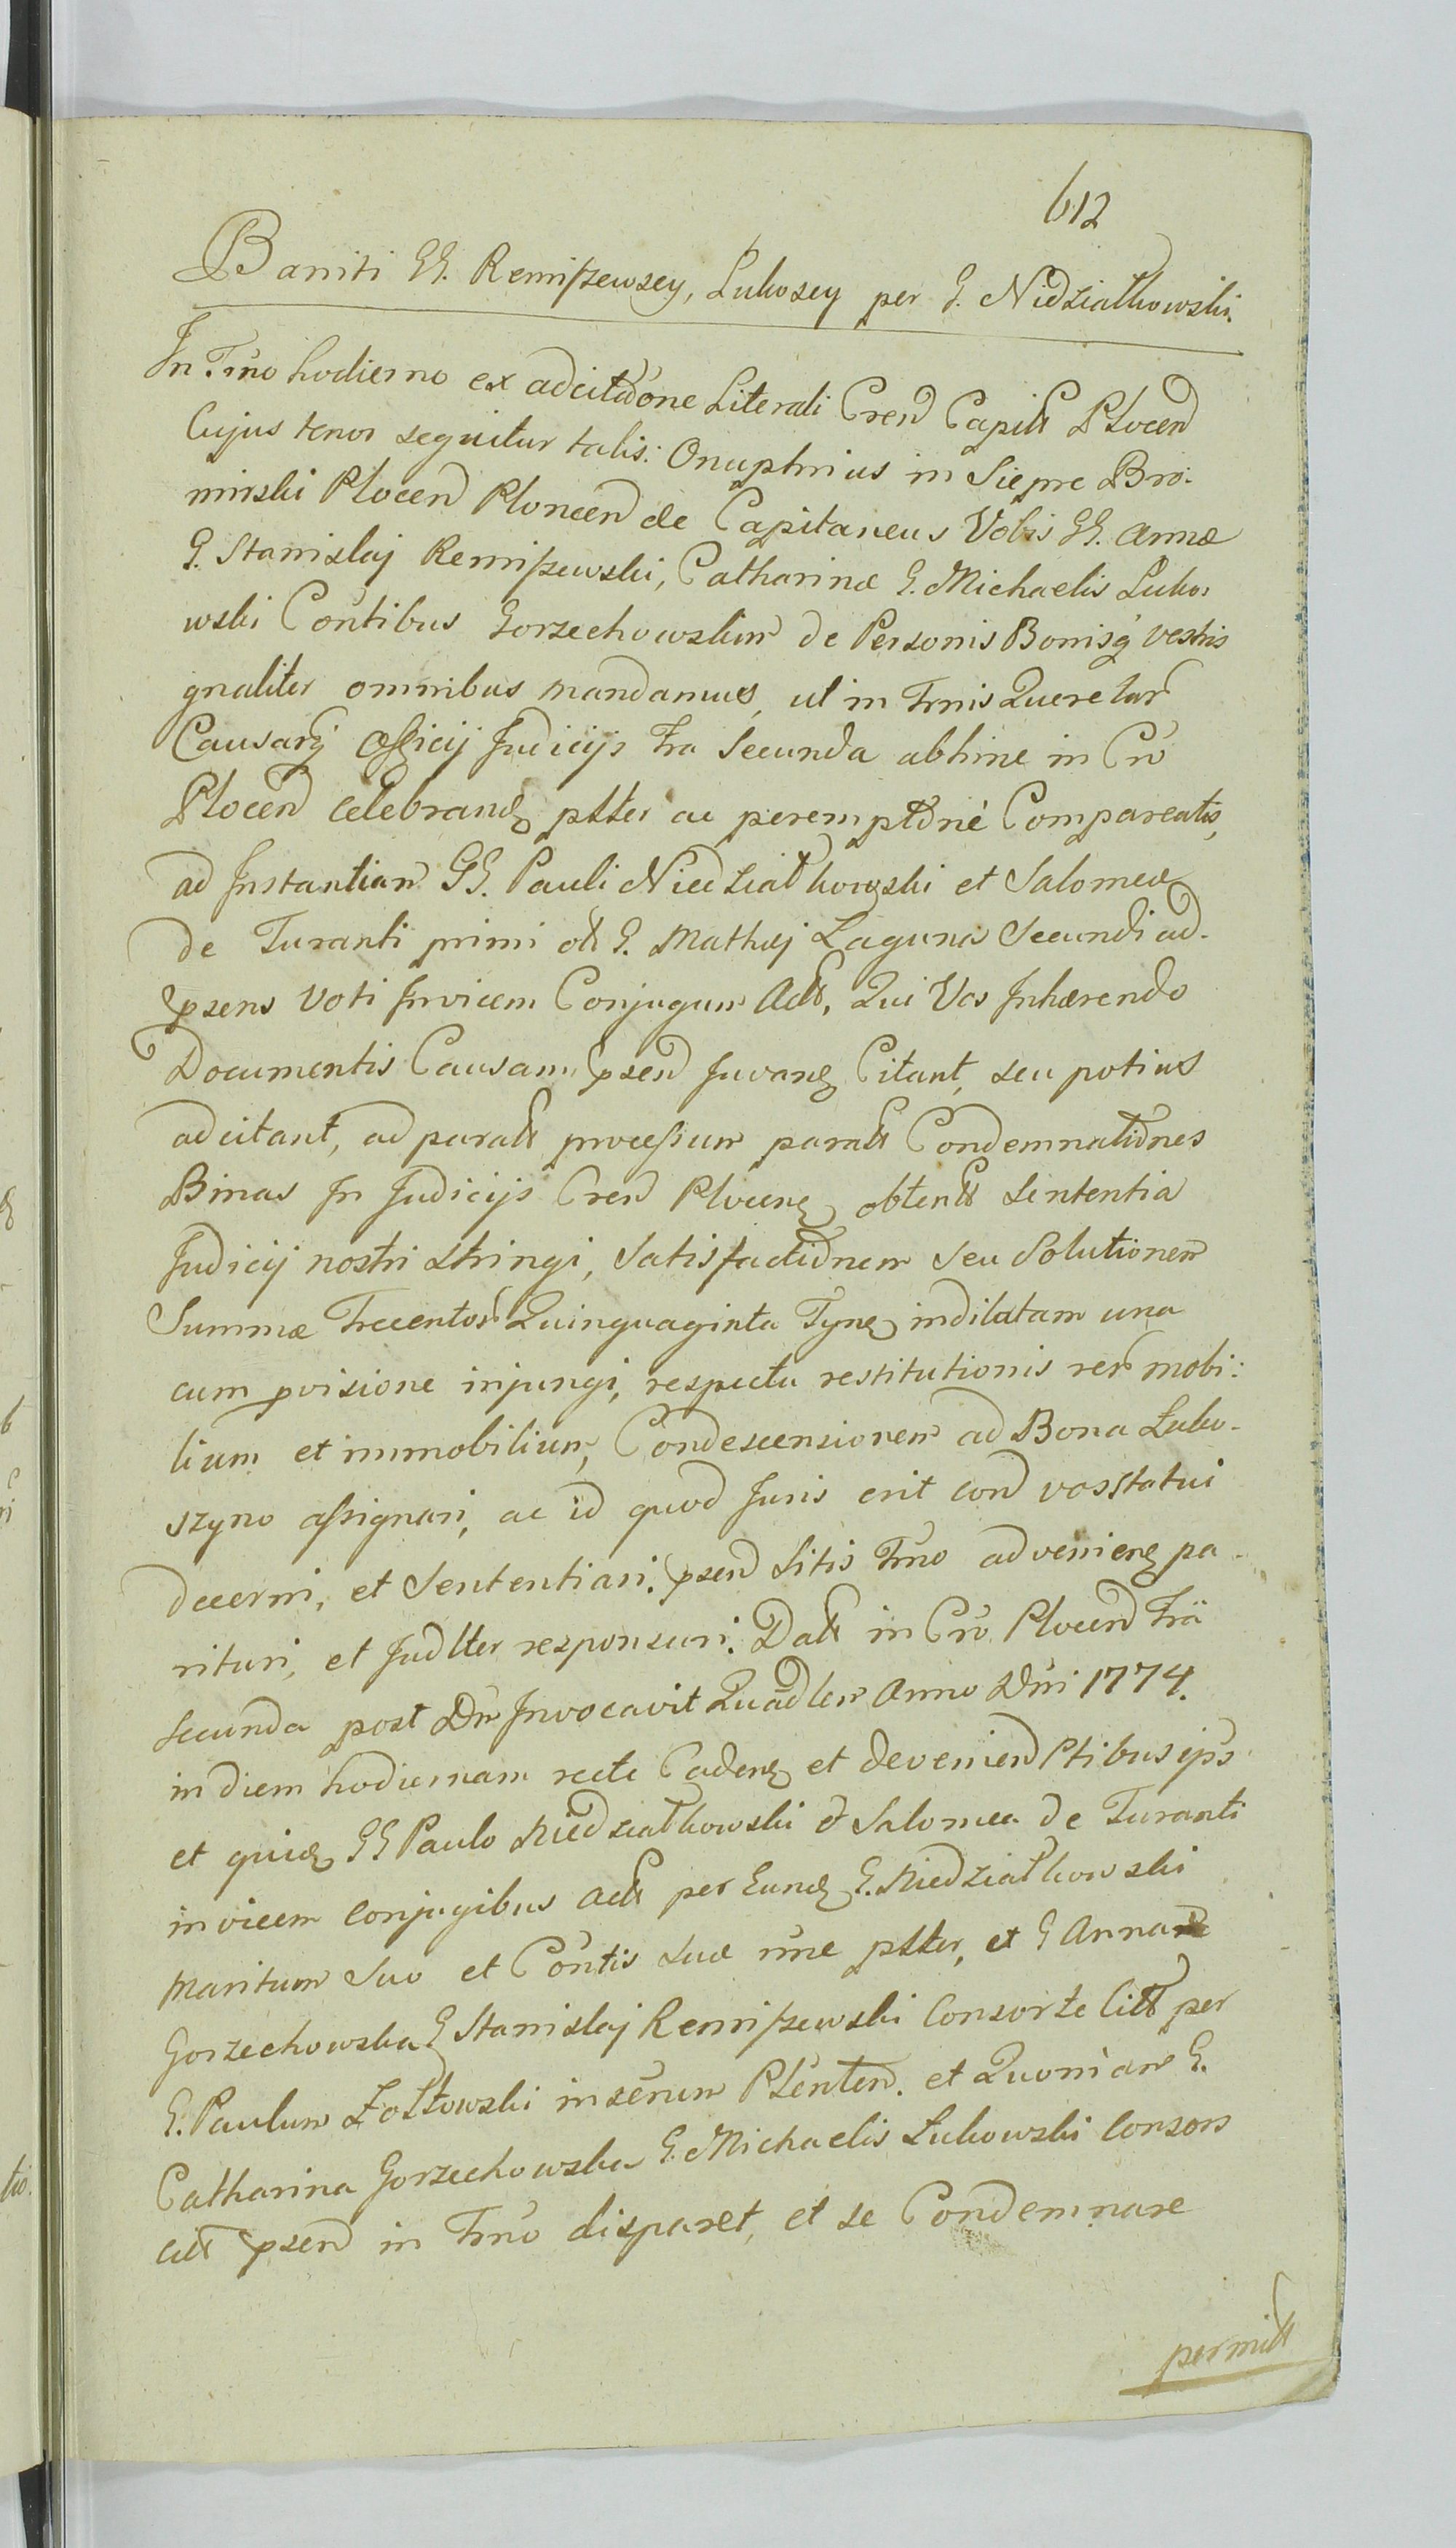 612
Baniti GG. Remiszewscy, Lukoscy per G. Niedziałkowski.
In Trno hodierno ex adcitaone Literali Cren Capitt Plocen
Cujus tenor sequitur talis: Onuphrius in Siepre Bro:
minski Plocen Ploncen de Capitaneus Vobis GG. Annæ
G. Stanislaj Remiszewski, Catharinæ G. Michaelis Luko,
wski Contibus Gorzechowskim de Personis Bonisq vestris
gnaliter omnibus mandamus, ut in Trnis Querelar
Causarq Officij Judicijs fra Secunda abhinc in Cro
Plocen celebrand, pltter ac peremptorie Compareatis,
ad Instantiam GG. Pauli Niedziałkowski et Salomeæ
de Turanti primi olt G. Mathæj Laguna Secundi ad.
psens Voti Invicem Conjugum Actt, Qui Vos Inhærendo
Documentis Causam psen Juvan Citant, seu potius
adcitant, ad paratt processum paratt Condemnationes
Binas In Judicijs Cren Plocen obtentt Sententia
Judicij nostri Stringi, Satisfactionem seu Solutionem
Summæ Trecentor Quinquaginta Tyn indilatam una
cum pvisione injungi, respectu restitutionis rer mobi:
lium et immobilium, Condescensionem ad Bona Luko-
szyno assignari, ac id quod Juris erit con vos Statui
decerni, et Sententiari. psen Litis Trno advenien pa-
rituri, et Judlter responsuri. Datt in Cro Plocen Fra
secunda post Dn Invocavit Quadlem Anno Dni 1774.
in diem hodiernam recte Caden et devenien Ptibus ips
et quid GG Paulo Niedziałkowski & Salomea de Turanti
invicem Conjugibus Actt per Eund G. Niedziałkowski
Maritum Suo et Contis Suæ nne pltter, et G Anna
Gorzechowska G Stanislaj Remiszewski Consorte Citt per
G. Paulum Zołtowski insernm Plenten. et Quoniam G.
Catharina Gorzechowska G. Michaelis Lukowski Consors
citt psen in Trno disparet, et se Condemnare
permitt